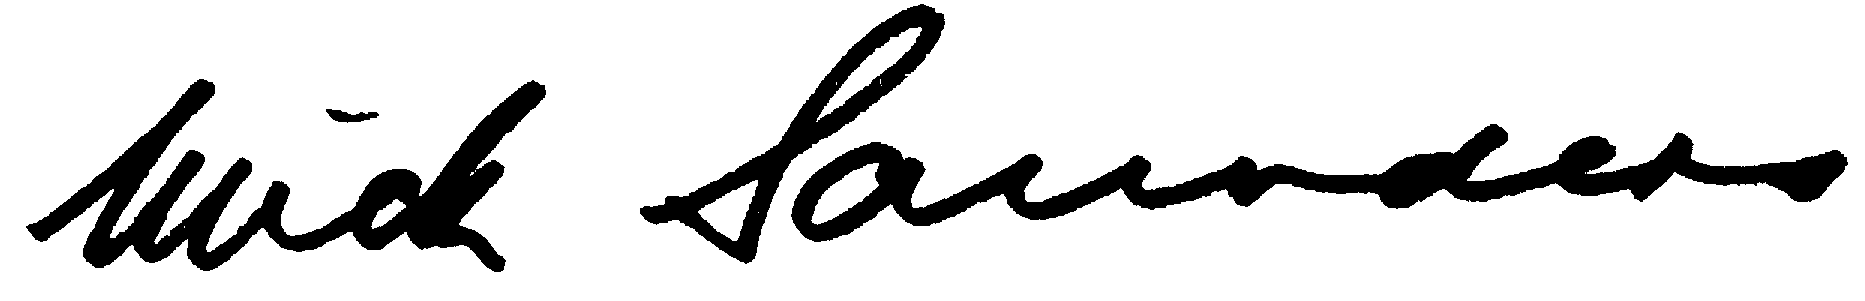 Mick Saunders